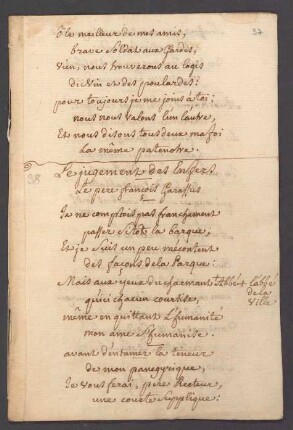 37
O le meilleur de mes amis,
brave soldat aux gardes,
Vien, nous trouverons au logis
du vin et des poulardes:
pour toujours je me joins à toi:
nous nous valons l'un l'autre,
Et nous disons tous deux ma foi
La même patenôtre.
38
Le jugement des Enfers.
Le pere françois Garassus
Je ne comptois pas franchement
passer sitôt la barque,
Et je suis un peu mécontent
des façons de la Parque:
Mais aux yeux du charmant Abbé+
+ L'abbé
de la
Ville
qu'ici chacun courtise,
même en quittant l'humanité
mon ame s'humanise.
avant d'entamer la teneur
de mon panegyrique,
Je vous ferai, pere Recteur,
une courte supplique: